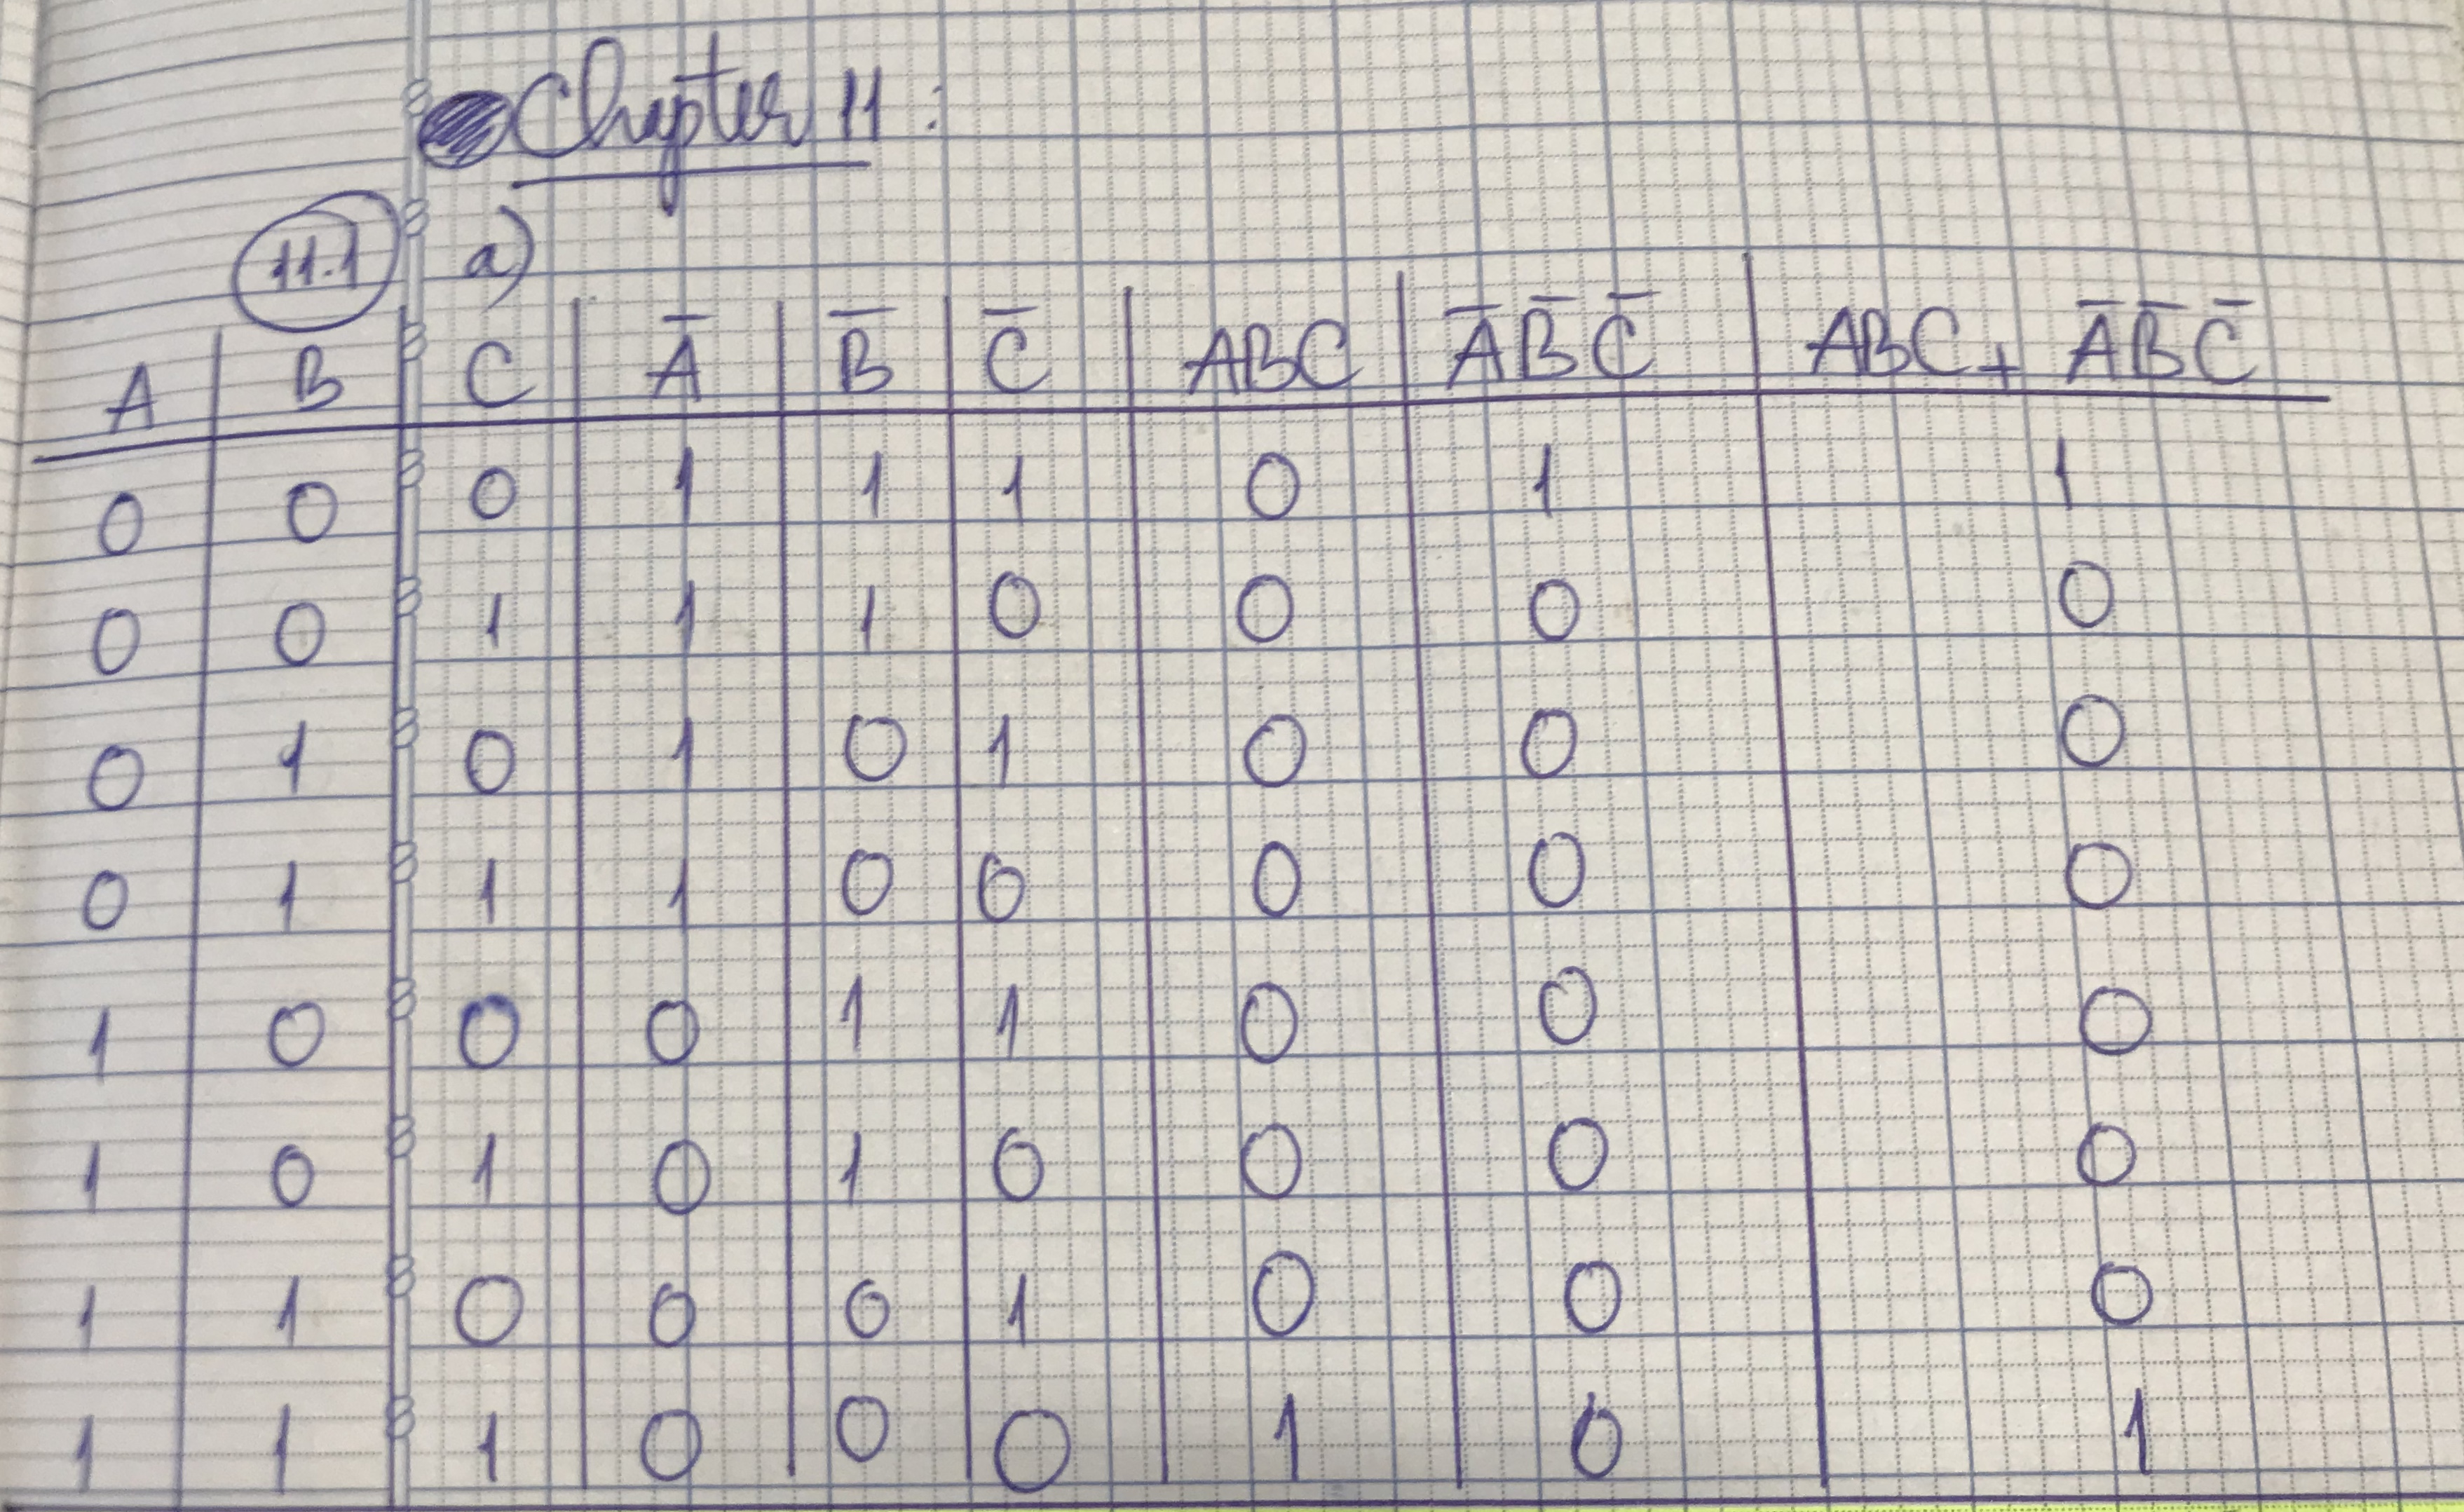 Chapter 11 :
11.1 a)
A B C A̅ B̅ C̅ ABC A̅B̅C̅ ABC + A̅B̅C̅
0 0 0 1 1 1 0 1 1
0 0 1 1 1 0 0 0 0
0 1 0 1 0 1 0 0 0
0 1 1 1 0 0 0 0 0
1 0 0 0 1 1 0 0 0
1 0 1 0 1 0 0 0 0
1 1 0 0 0 1 0 0 0
1 1 1 0 0 0 1 0 1